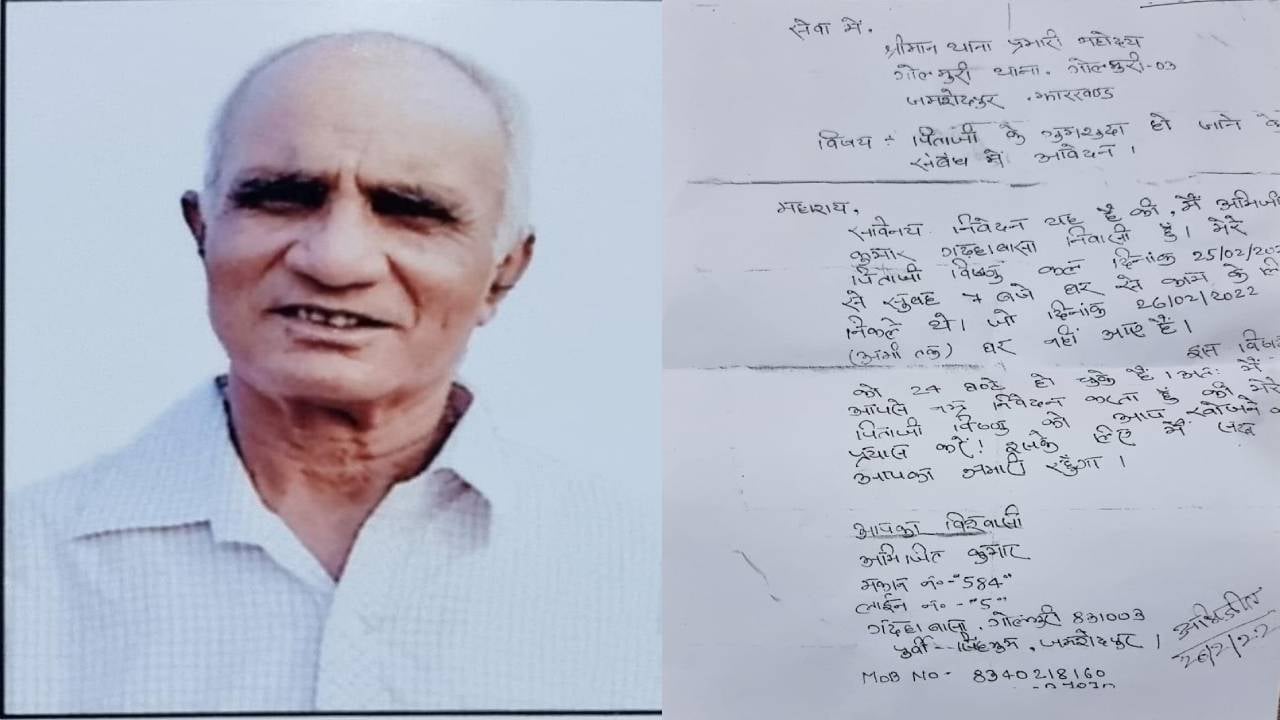 सेवा में,
श्रीमान थाना प्रभारी महोदय
गोलमुरी थाना, गोलमुरी-03
जमशेदपुर, झारखण्ड
विषय :- पिताजी के गुमशुदा हो जाने के
संबंध में आवेदन।
महाशय,
सविनय निवेदन यह है की, मैं अभिजीत
कुमार गदहाबासा निवासी हूँ। मेरे
पिताजी विष्णु कल दिनांक 25/02/202
से सुबह 7 बजे घर से काम के लि
निकले थे। जो दिनांक 26/02/2022
(अभी तक) घर नहीं आए हैं।
इस विषय
को 24 घन्टे हो चुके हैं। अतः मैं
आपसे नम्र निवेदन करता हूं की मेरे
पिताजी विष्णु को आप खोजने का
प्रयास करें! इसके लिए मैं सदा
आपका अभारी रहूँगा।
आपका विश्वासी
अभिजित कुमार
मकान नं०-"584"
लाईन नं० -"5"
गदहाबासा, गोलमुरी 831003
पूर्वी- सिंहभूम, जमशेदपुर।
MOB NO- 8340218160
अभिजीत
26/2/22